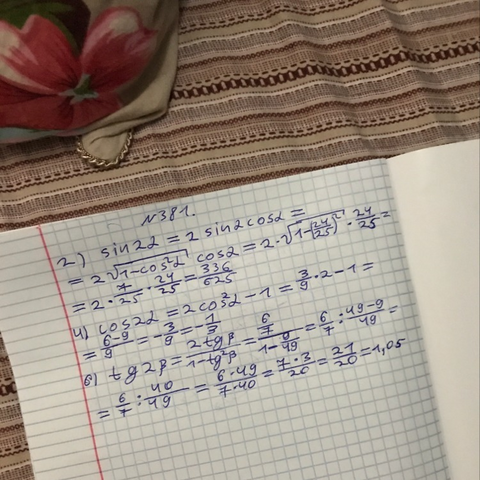 №381.
2) sin2α = 2 sinα cosα =
= 2√(1-cos²α) cosα = 2·√(1-(24/25)²) · 24/25 =
= 2 · 7/25 · 24/25 = 336/625
4) cos2α = 2cos²α - 1 = 3/9 · 2 - 1 =
= (6-9)/9 = -3/9 = -1/3
6) tg2β = 2tgβ/(1-tg²β) = (6/7)/(1-9/49) = 6/7 : (49-9)/49 =
= 6/7 : 40/49 = (6·49)/(7·40) = (7·3)/20 = 21/20 = 1,05